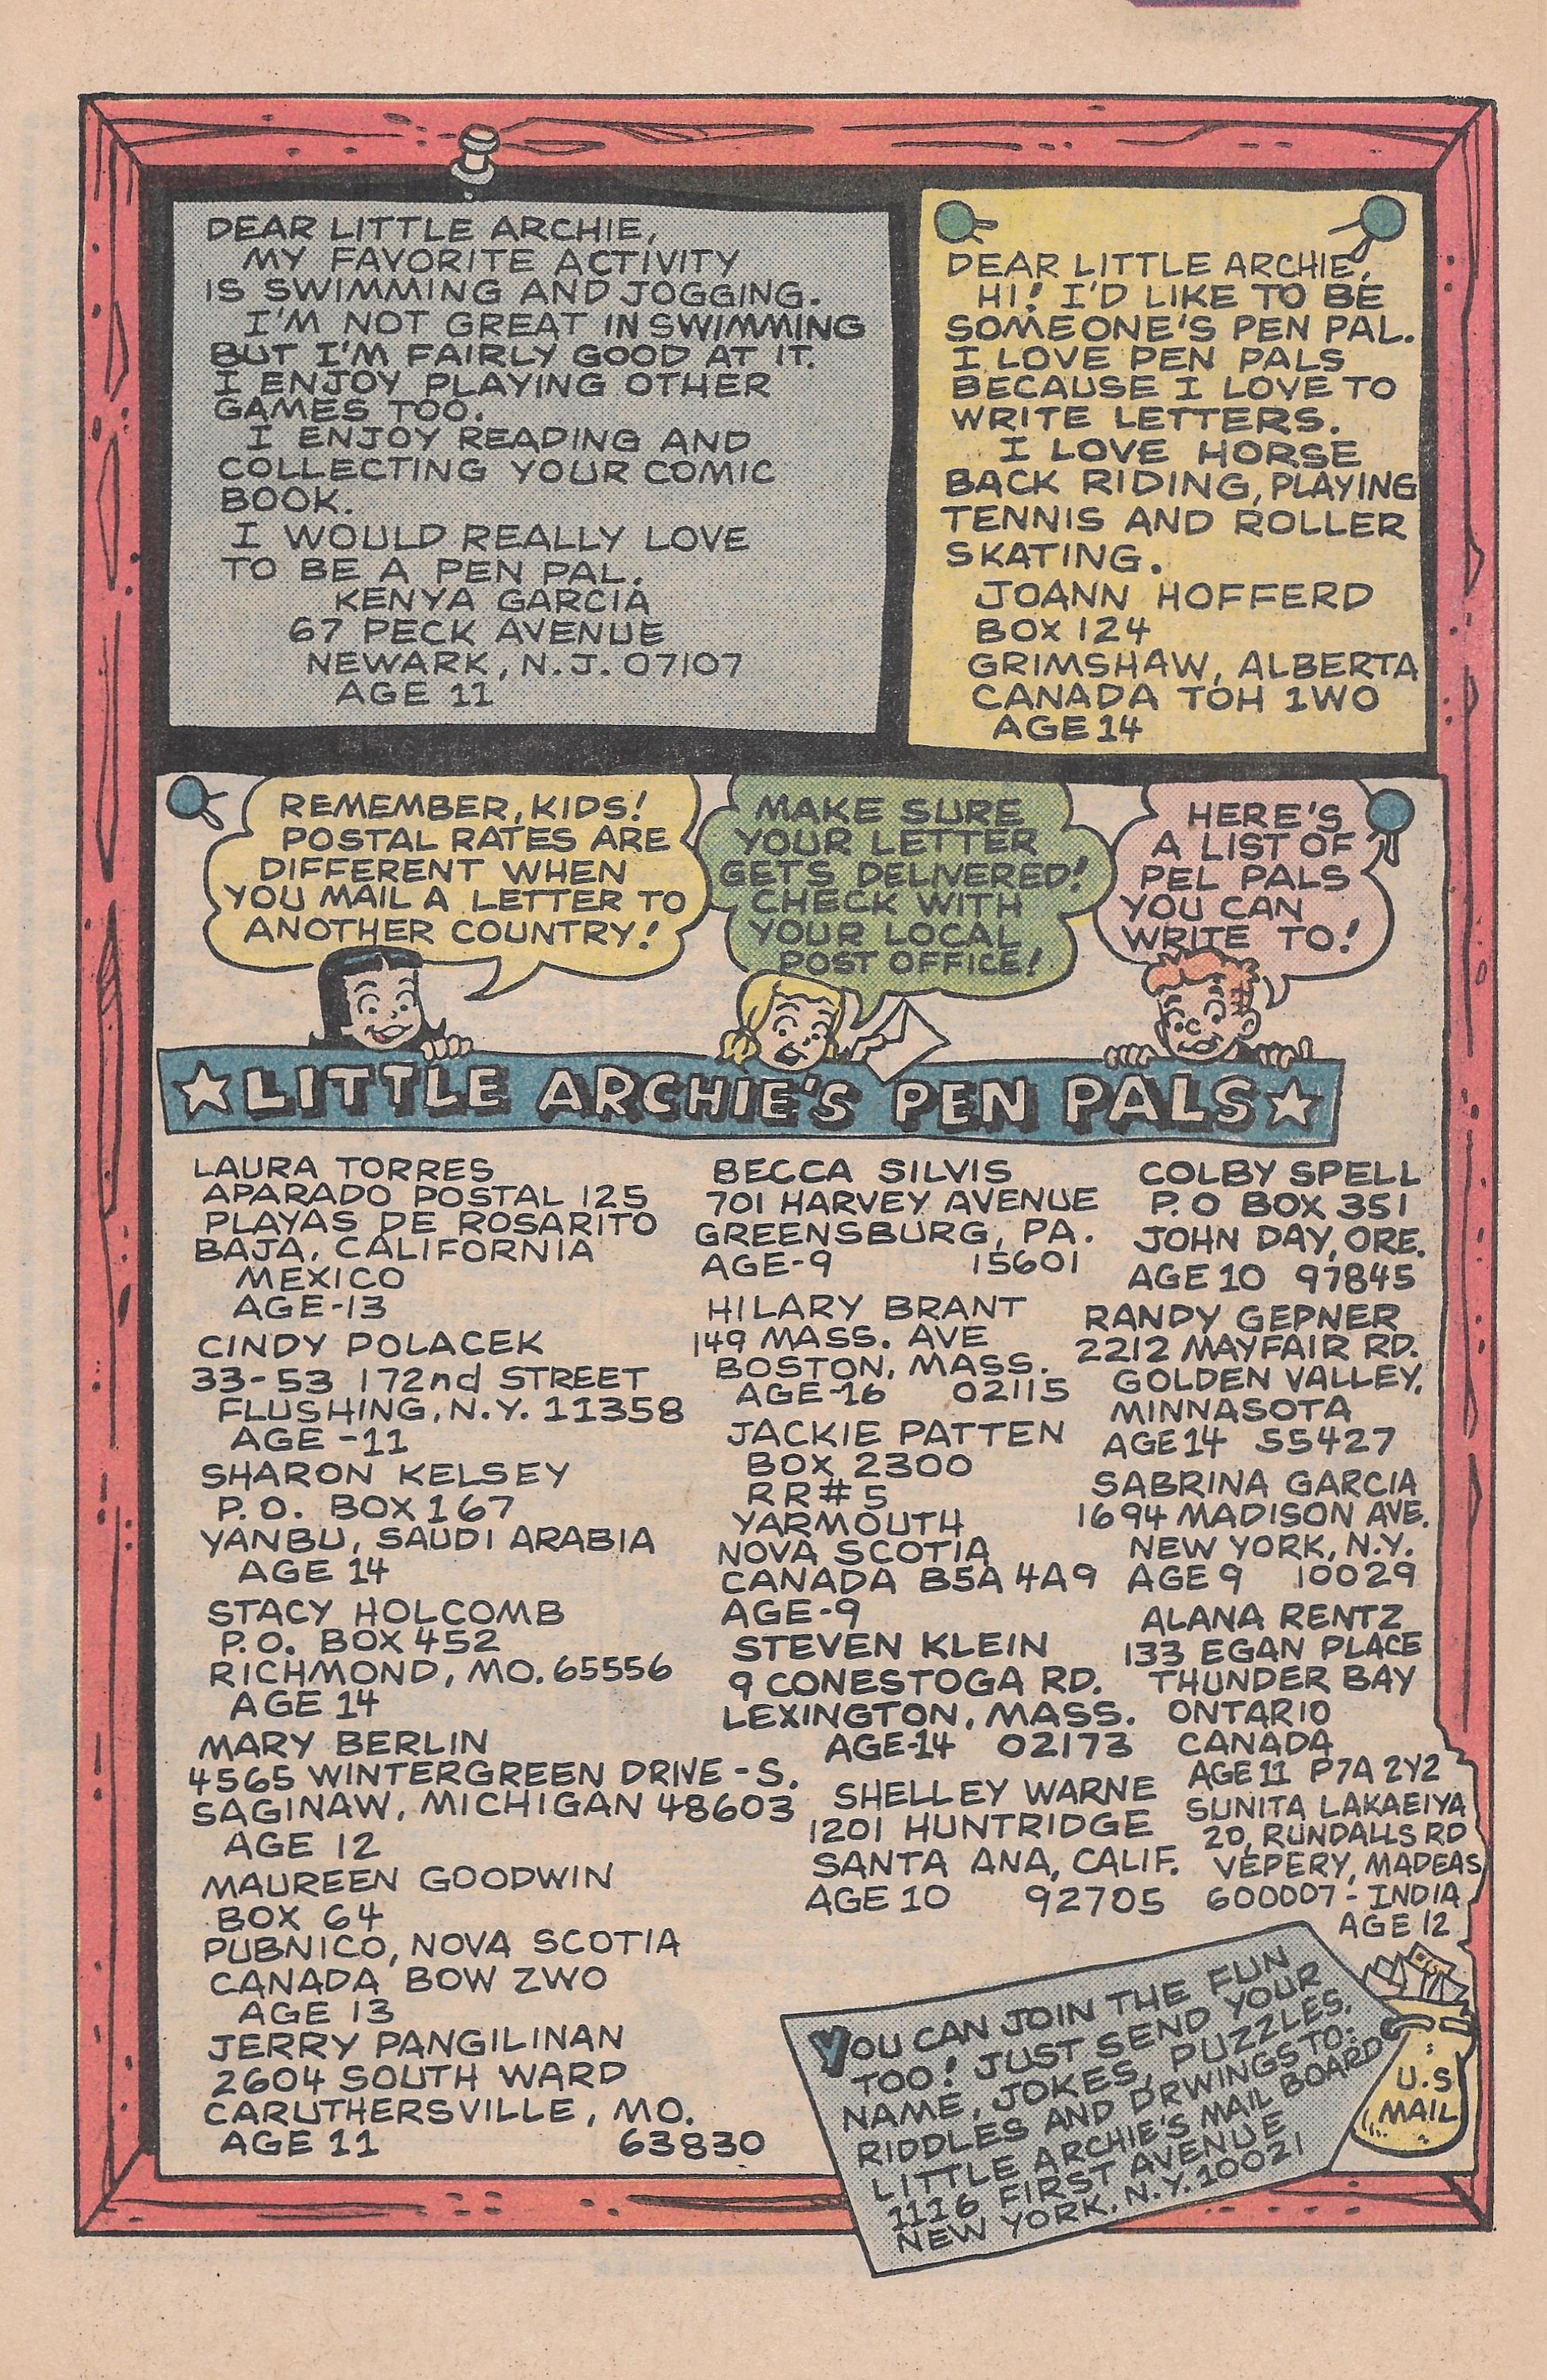 DEAR LITTLE ARCHIE,
MY FAVORITE ACTIVITY
IS SWIMMING AND JOGGING.
I'M NOT GREAT IN SWIMMING
BUT I'M FAIRLY GOOD AT IT.
I ENJOY PLAYING OTHER
GAMES TOO.
I ENJOY READING AND
COLLECTING YOUR COMIC
BOOK.
I WOULD REALLY LOVE
TO BE A PEN PAL.
KENYA GARCIA
67 PECK AVENUE
NEWARK, N.J. 07107
AGE 11
DEAR LITTLE ARCHIE,
HI! I'D LIKE TO BE
SOMEONE'S PEN PAL.
I LOVE PEN PALS
BECAUSE I LOVE TO
WRITE LETTERS.
I LOVE HORSE
BACK RIDING, PLAYING
TENNIS AND ROLLER
SKATING.
JOANN HOFFERD
BOX 124
GRIMSHAW, ALBERTA
CANADA TOH 1WO
AGE 14
REMEMBER, KIDS!
POSTAL RATES ARE
DIFFERENT WHEN
YOU MAIL A LETTER TO
ANOTHER COUNTRY!
MAKE SURE
YOUR LETTER
GETS DELIVERED!
CHECK WITH
YOUR LOCAL
POST OFFICE!
HERE'S
A LIST OF
PEL PALS
YOU CAN
WRITE TO!
★LITTLE ARCHIE'S PEN PALS★
LAURA TORRES
APARADO POSTAL 125
PLAYAS DE ROSARITO
BAJA, CALIFORNIA
MEXICO
AGE-13
CINDY POLACEK
33-53 172nd STREET
FLUSHING, N.Y. 11358
AGE -11
SHARON KELSEY
P.O. BOX 167
YANBU, SAUDI ARABIA
AGE 14
STACY HOLCOMB
P.O. BOX 452
RICHMOND, MO. 65556
AGE 14
MARY BERLIN
4565 WINTERGREEN DRIVE - S.
SAGINAW, MICHIGAN 48603
AGE 12
MAUREEN GOODWIN
BOX 64
PUBNICO, NOVA SCOTIA
CANADA BOW ZWO
AGE 13
JERRY PANGILINAN
2604 SOUTH WARD
CARUTHERSVILLE, MO.
AGE 11 63830
BECCA SILVIS
701 HARVEY AVENUE
GREENSBURG, PA.
AGE-9 15601
HILARY BRANT
149 MASS. AVE
BOSTON, MASS.
AGE-16 02115
JACKIE PATTEN
BOX 2300
RR# 5
YARMOUTH
NOVA SCOTIA
CANADA B5A 4A9
AGE-9
STEVEN KLEIN
9 CONESTOGA RD.
LEXINGTON, MASS.
AGE-14 02173
SHELLEY WARNE
1201 HUNTRIDGE
SANTA ANA, CALIF.
AGE 10 92705
COLBY SPELL
P.O BOX 351
JOHN DAY, ORE.
AGE 10 97845
RANDY GEPNER
2212 MAYFAIR RD.
GOLDEN VALLEY,
MINNASOTA
AGE 14 55427
SABRINA GARCIA
1694 MADISON AVE.
NEW YORK, N.Y.
AGE 9 10029
ALANA RENTZ
133 EGAN PLACE
THUNDER BAY
ONTARIO
CANADA
AGE 11 P7A 2Y2
SUNITA LAKAEIYA
20, RUNDALLS RD
VEPERY, MADEAS
600007 - INDIA
AGE 12
YOU CAN JOIN THE FUN
TOO! JUST SEND YOUR
NAME, JOKES, PUZZLES,
RIDDLES AND DRWINGS TO:
LITTLE ARCHIE'S MAIL BOARD
1116 FIRST AVENUE
NEW YORK, N.Y. 10021
U.S
MAIL